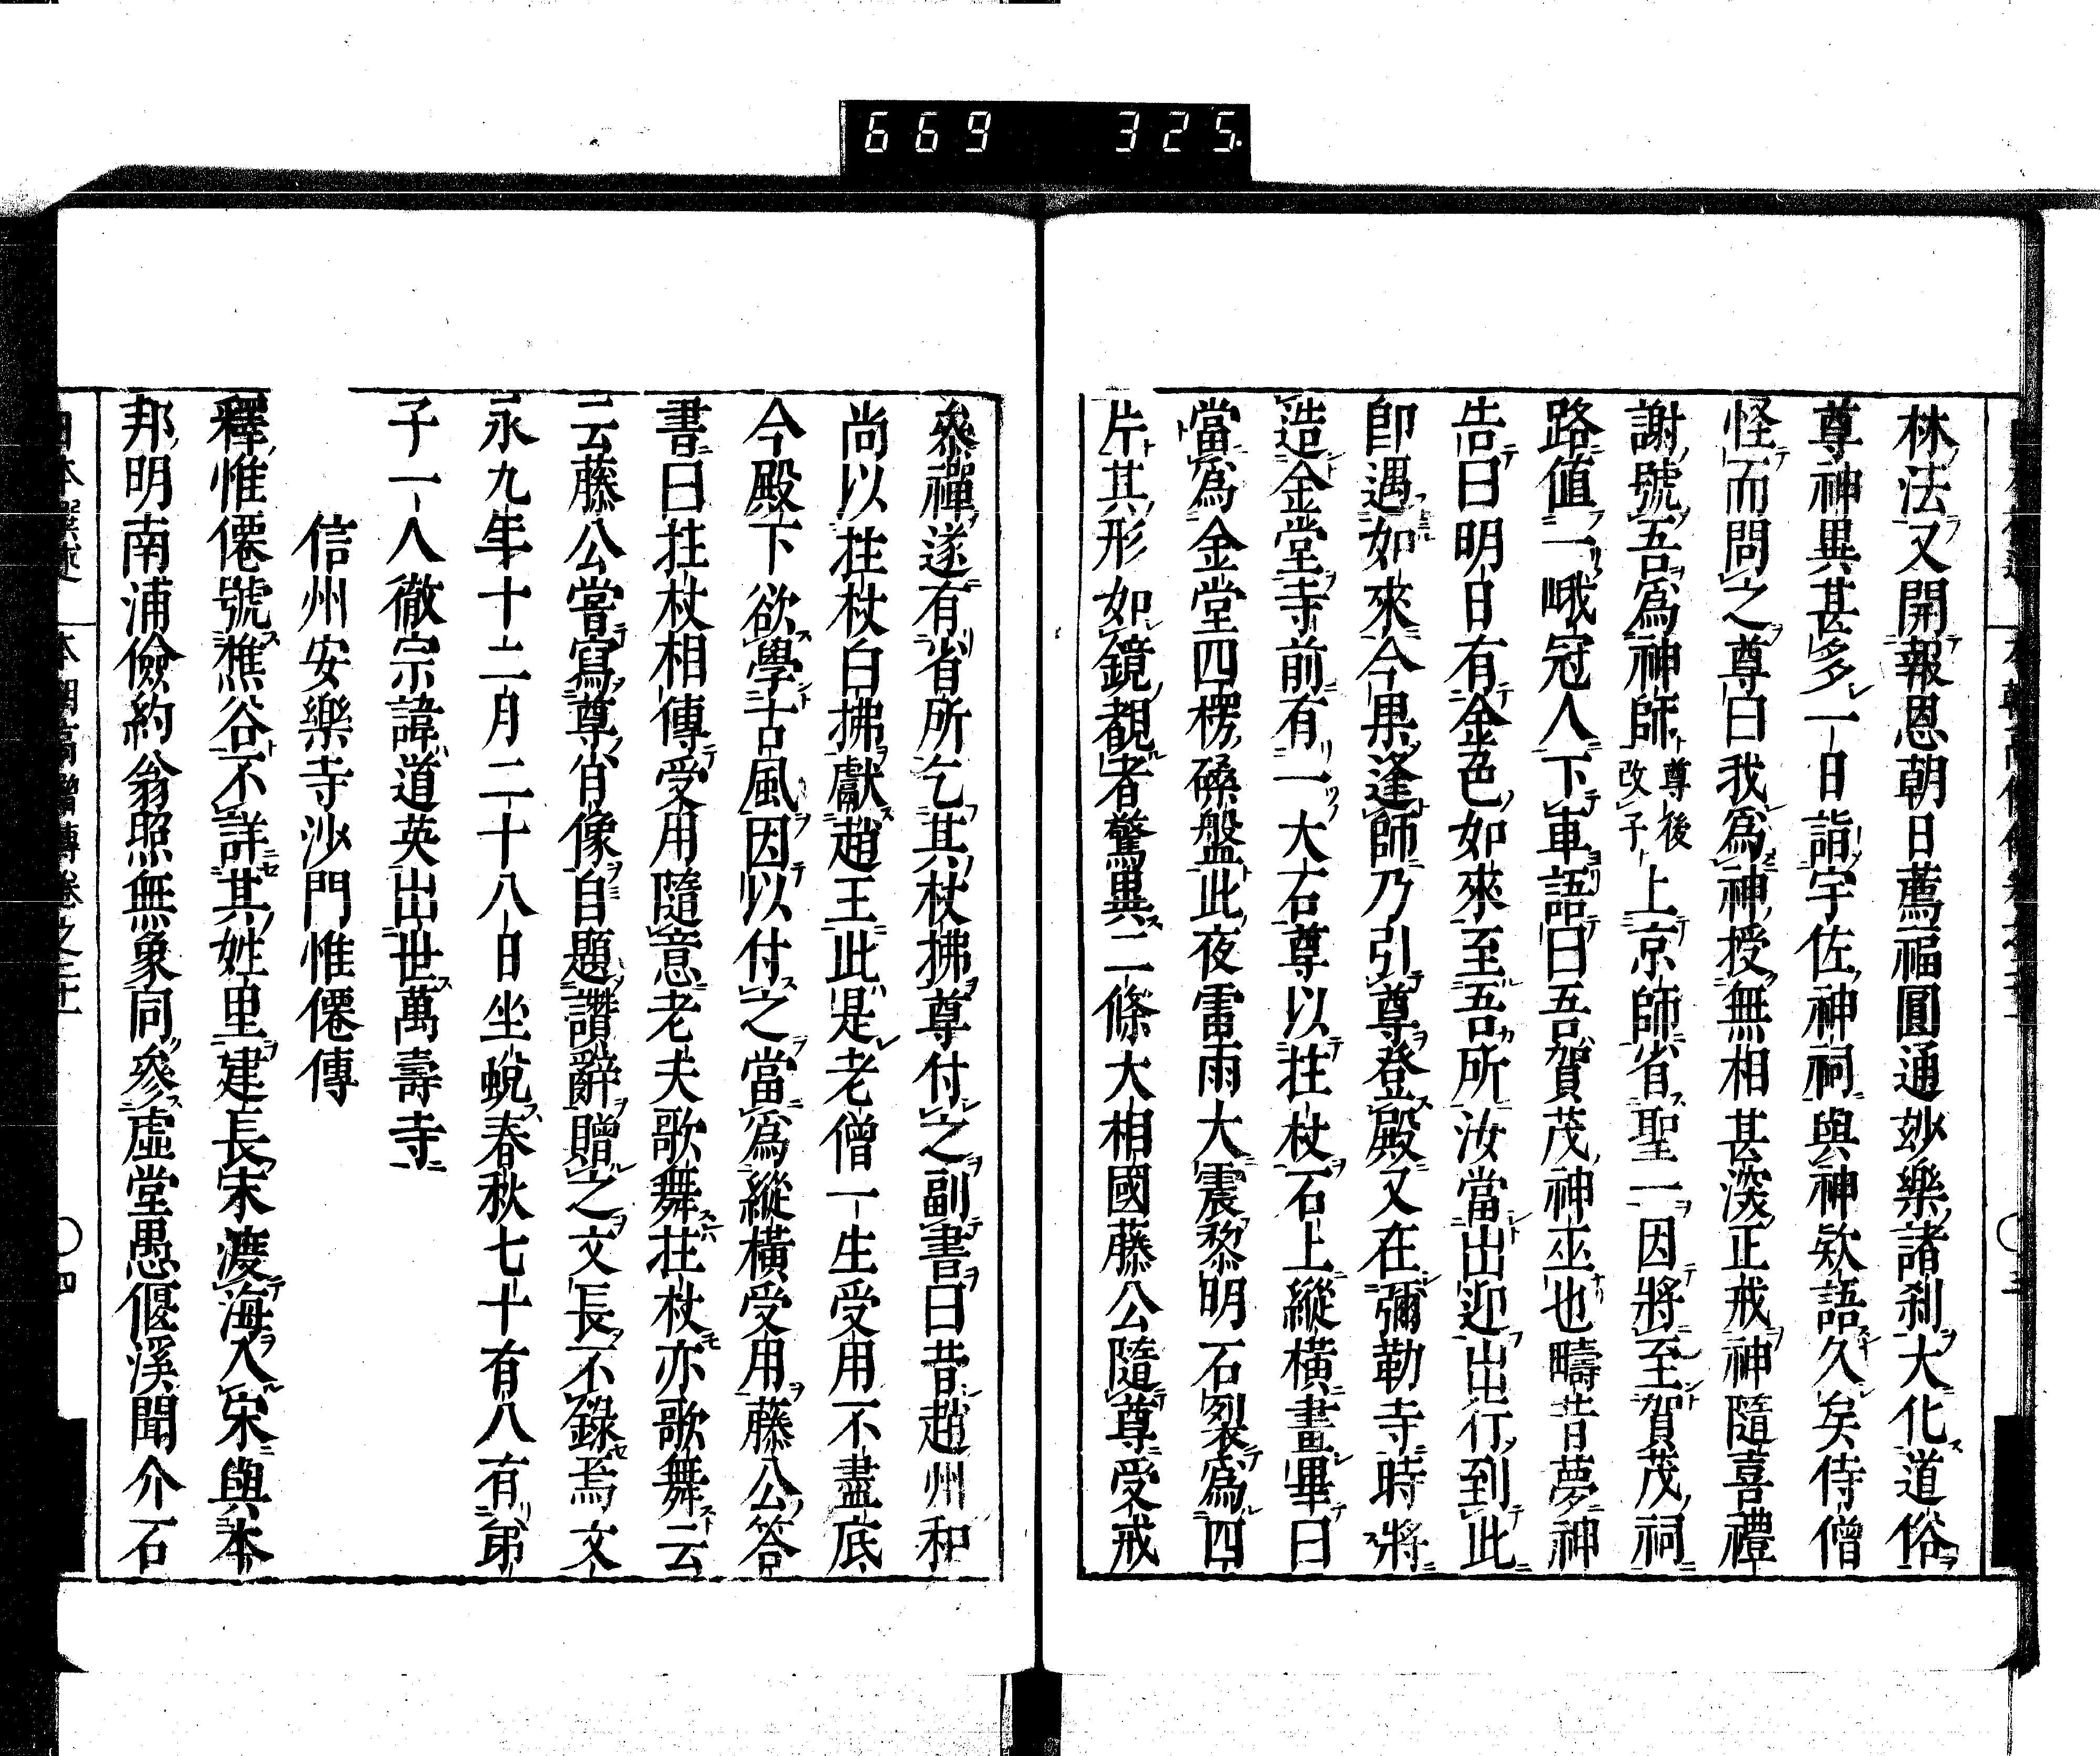 669 325
林法又開報恩朝日薦福圓通玅樂諸刹大化道俗
尊神異甚多一日詣宇佐神祠與神欵語久矣侍僧
怪而問之尊曰我爲神授無相甚深正戒神隨喜禮
謝號吾爲神師尊後改子上京師省聖一因將至賀茂祠
路值一峨冠人下車語曰吾賀茂神巫也疇昔夢神
告曰明日有金色如來至吾所汝當出迎出行到此
卽遇如來今果逢師乃引尊登殿又在彌勒寺時將
造金堂寺前有一大石尊以拄杖石上縱橫畫畢曰
當爲金堂四楞磉盤此夜雷雨大震黎明石裂爲四
片其形如鏡覩者驚異二條大相國藤公隨尊受戒
參禪遂有省所乞其杖拂尊付之副書曰昔趙州和
尚以拄杖白拂獻趙王此是老僧一生受用不盡底
今殿下欲學古風因以付之當爲縱橫受用藤公答
書曰拄杖相傳受用隨意老夫歌舞拄杖亦歌舞云
云藤公嘗寫尊肖像自題讚辭贈之文長不錄焉文
永九年十二月二十八日坐蛻春秋七十有八有弟
子一人徹宗諱道英出世萬壽寺
信州安樂寺沙門惟僊傳
釋惟僊號樵谷不詳其姓里建長末渡海入宋與本
邦明南浦儉約翁照無象同參虛堂愚偃溪聞介石
日本撰述 本朝高僧傳卷之二十一 〇 四